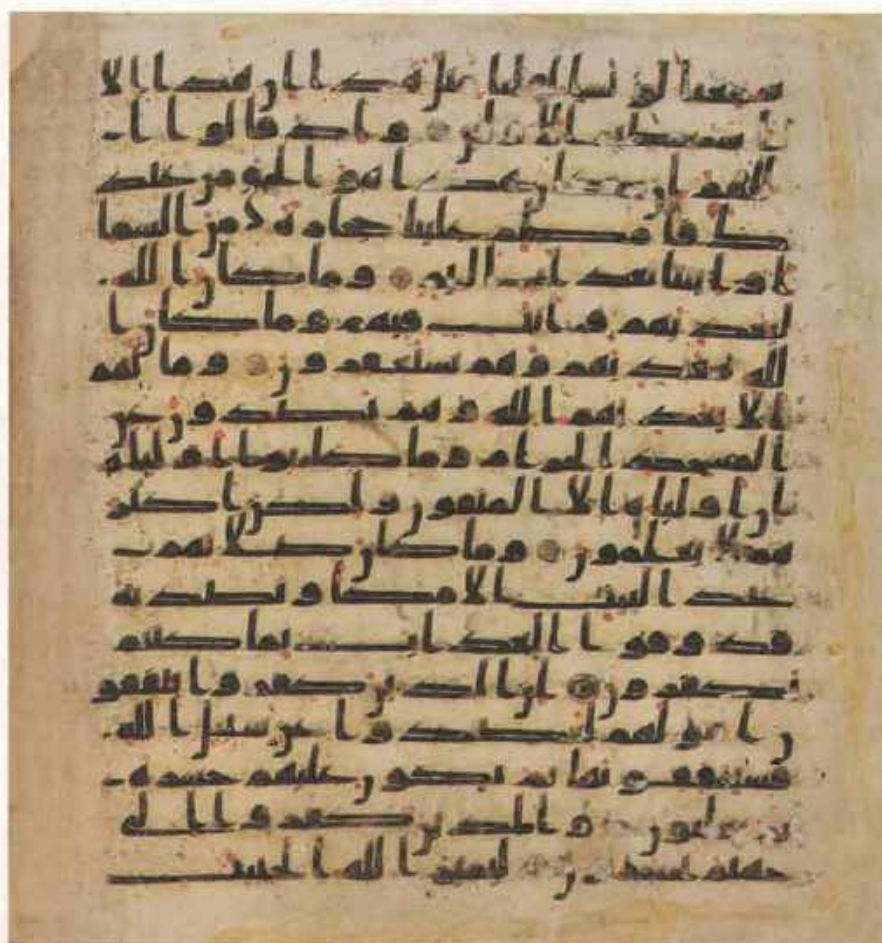 سمعنا لو نشا لقلنا مثل هذا ان هذا الا
اسطير الاولين واذ قالوا ا
للهم ان كان هذا هو الحق من عند
ك فامطر علينا حجارة من السما
ا و ايتنا بعذاب اليم وما كان الله
ليعذبهم وانت فيهم وما كان ا
لله معذبهم وهم يستغفرون وما لهم
الا يعذبهم الله وهم يصدون عن
المسجد الحرام وما كانوا اولياه
ان اولياوه الا المتقون ولكن اكثر
هم لا يعلمون وما كان صلاتهم
عند البيت الا مكا وتصدية
فذوقوا العذاب بما كنتم
تكفرون ان الذين كفروا ينفقو
ن امولهم ليصدوا عن سبيل الله
فسينفقونها ثم تكون عليهم حسرة
ثم يغلبون والذين كفروا الى
جهنم يحشرون ليميز الله الخبيث